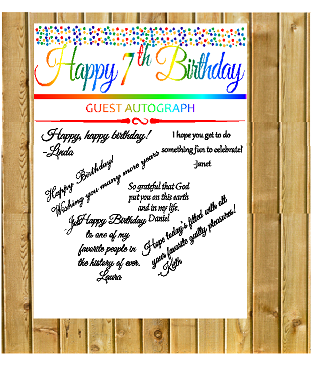 Happy 7th Birthday
GUEST AUTOGRAPH
Happy, happy birthday!
-Linda
I hope you get to do
something fun to celebrate!
Janet
Happy Birthday!
Wishing you many more years
So grateful that God
put you on this earth
and in my life.
Daniel
Happy Birthday
to one of my
favorite people in
the history of ever.
Laura
Hope today's filled with all
your favorite guilty pleasures!
-Keith